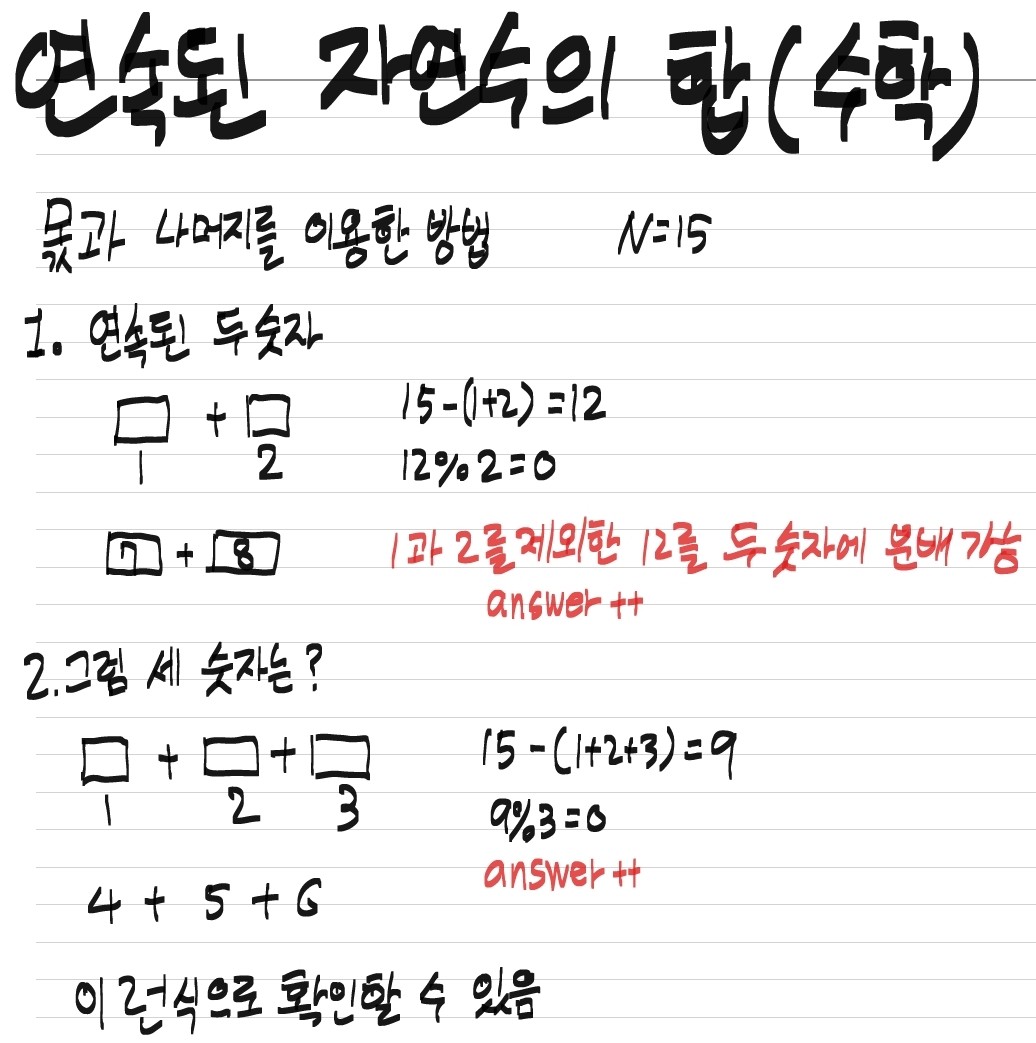 연속된 자연수의 합(수학)
몫과 나머지를 이용한 방법 N=15
1. 연속된 두 숫자
□ + □ 15-(1+2)=12
1 2 12%2=0
7 + 8 1과 2를 제외한 12를 두 숫자에 분배 가능
answer ++
2. 그럼 세 숫자는?
□ + □ + □ 15-(1+2+3)=9
1 2 3 9%3=0
answer ++
4 + 5 + 6
이런식으로 확인할 수 있음